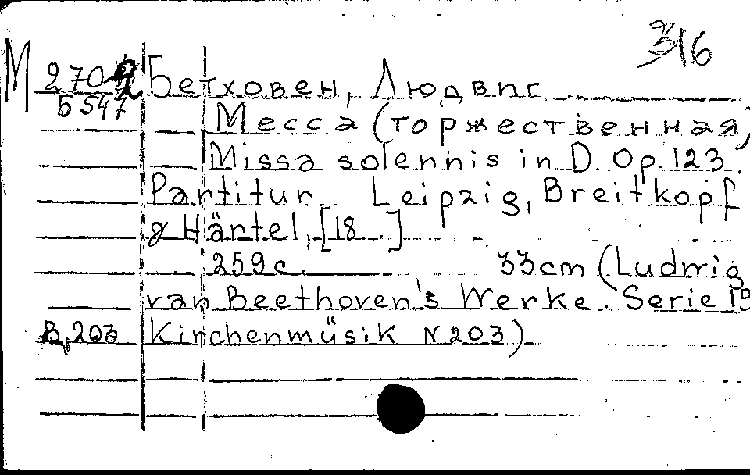 316
М 2702 Бетховен, Людвиг
Б547 Месса (торжественная)
Missa solennis in D. Op. 123.
Partitur. Leipzig, Breitkopf
& Härtel, [18..]
259 с. 33cm (Ludwig
van Beethoven's Werke. Serie 19
B,203 Kirchenmüsik N 203)